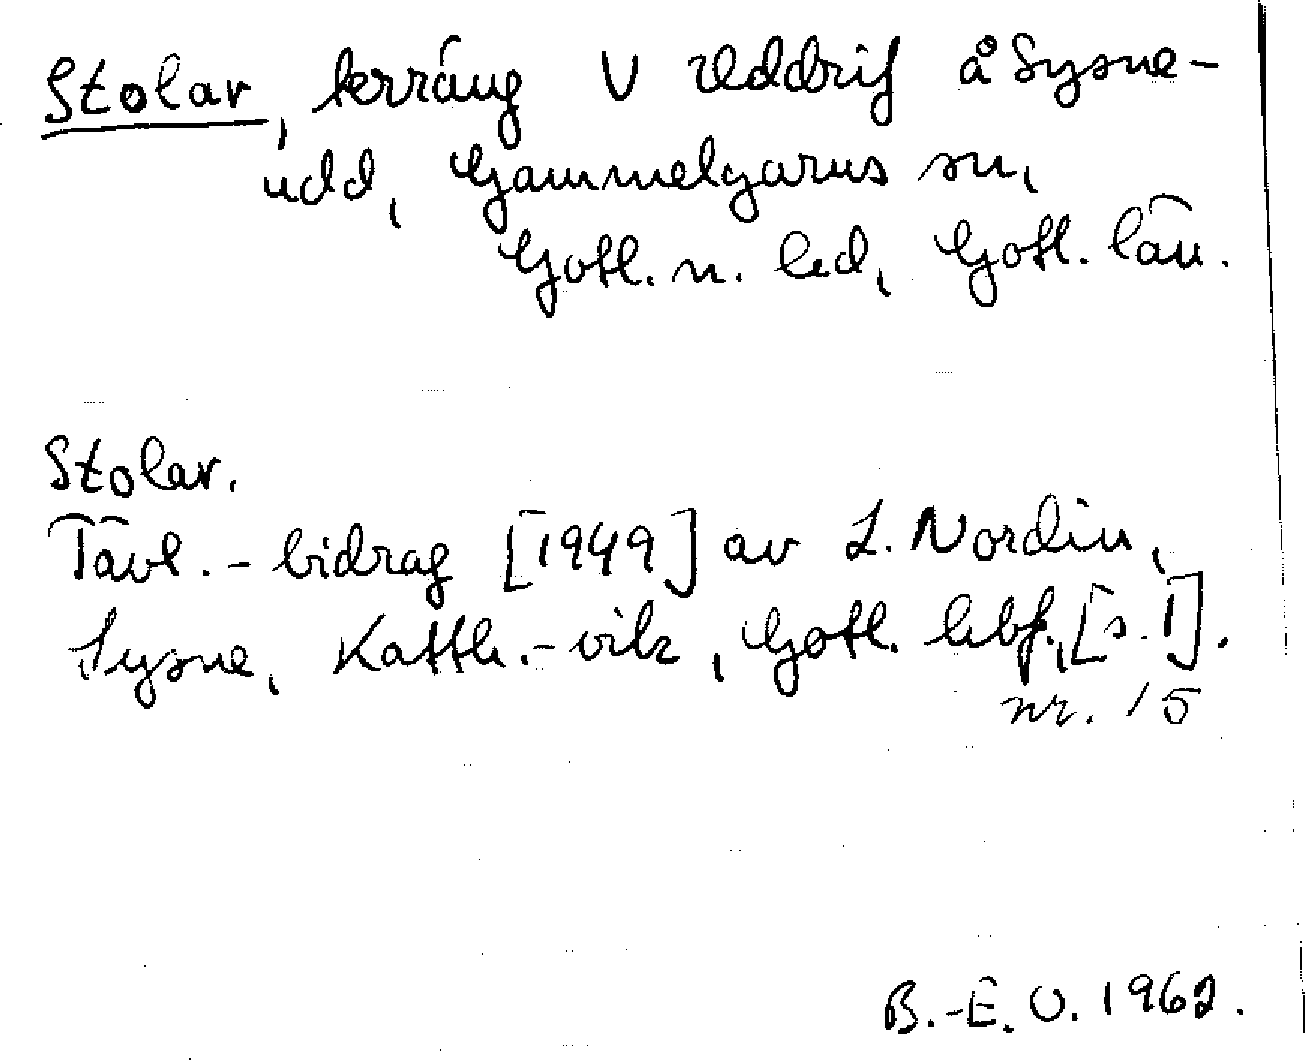 Stolar, terräng V Uddrif å Sysne-
udd, Gammelgarns sn,
Gotl. n. hd, Gotl. län.
Stolar.
Tävl.-bidrag [1949] av L. Nordin,
Sysne, Katth.-vik, Gotl. [s. 1].
nr. 15
B.-E. O. 1962.